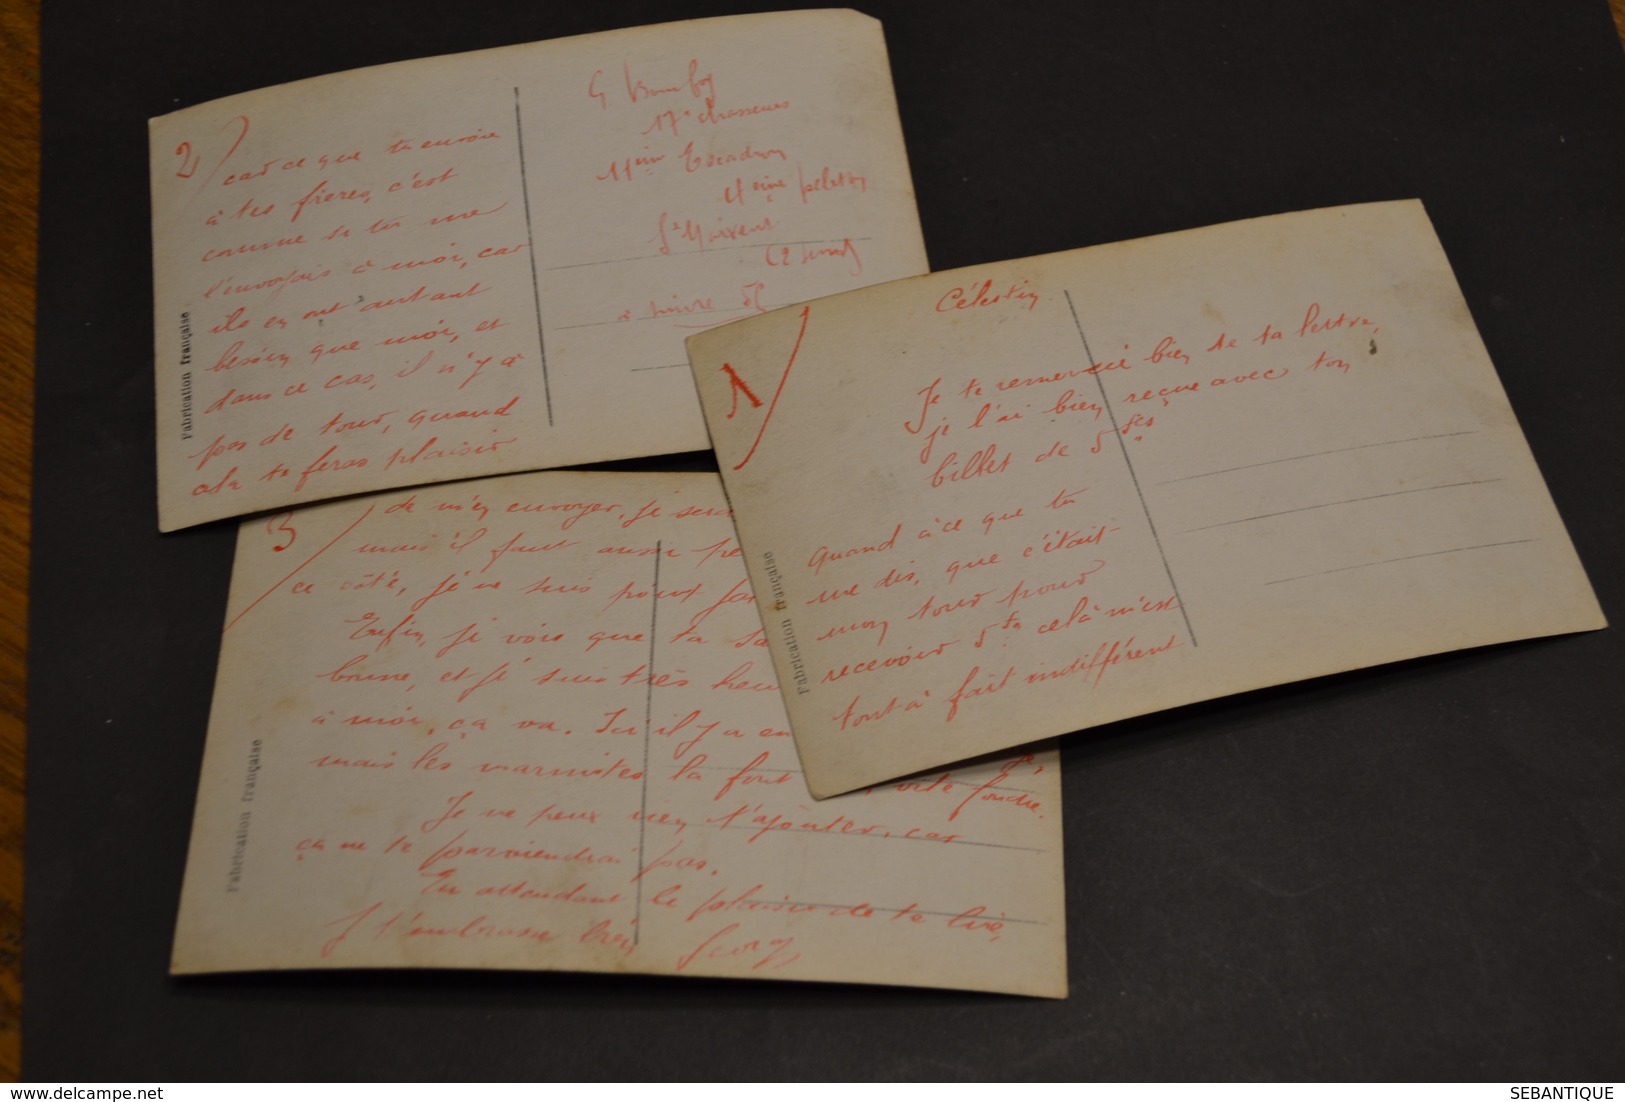 2
car ce que tu envoie
à tes frères, c'est
comme si tu me
l'envoyais à moi, car
ils en ont autant
besoin que moi, et
dans ce cas, il n'y à
pas de tour, quand
ala te feras plaisir
Fabrication française
G
17e chasseurs
11ème Escadron
4eme peloton
St Maixent
(2 Sèvres)
à suivre
1
Célestin
Je te remercie bien de ta lettre,
je l'ai bien reçue avec ton
billet de 5 frcs
Quand à ce que tu
me dis, que c'était
mon tour pour
recevoir 5 frs celà m'est
tout à fait indifférent
Fabrication française
3
de m'en envoyer, je serai
mais il faut aussi
ce côté, je ne suis point
Enfin, je vois que ta
bonne, et je suis très
à moi, ça va. Ici il y a en
mais les marmites la font
fondre.
Je ne peux rien t'ajouter, car
ça ne te parviendrai pas.
En attendant le plaisir de te lire,
J t'embrasse bien
Fabrication française
delcampe.net
SEBANTIQUE